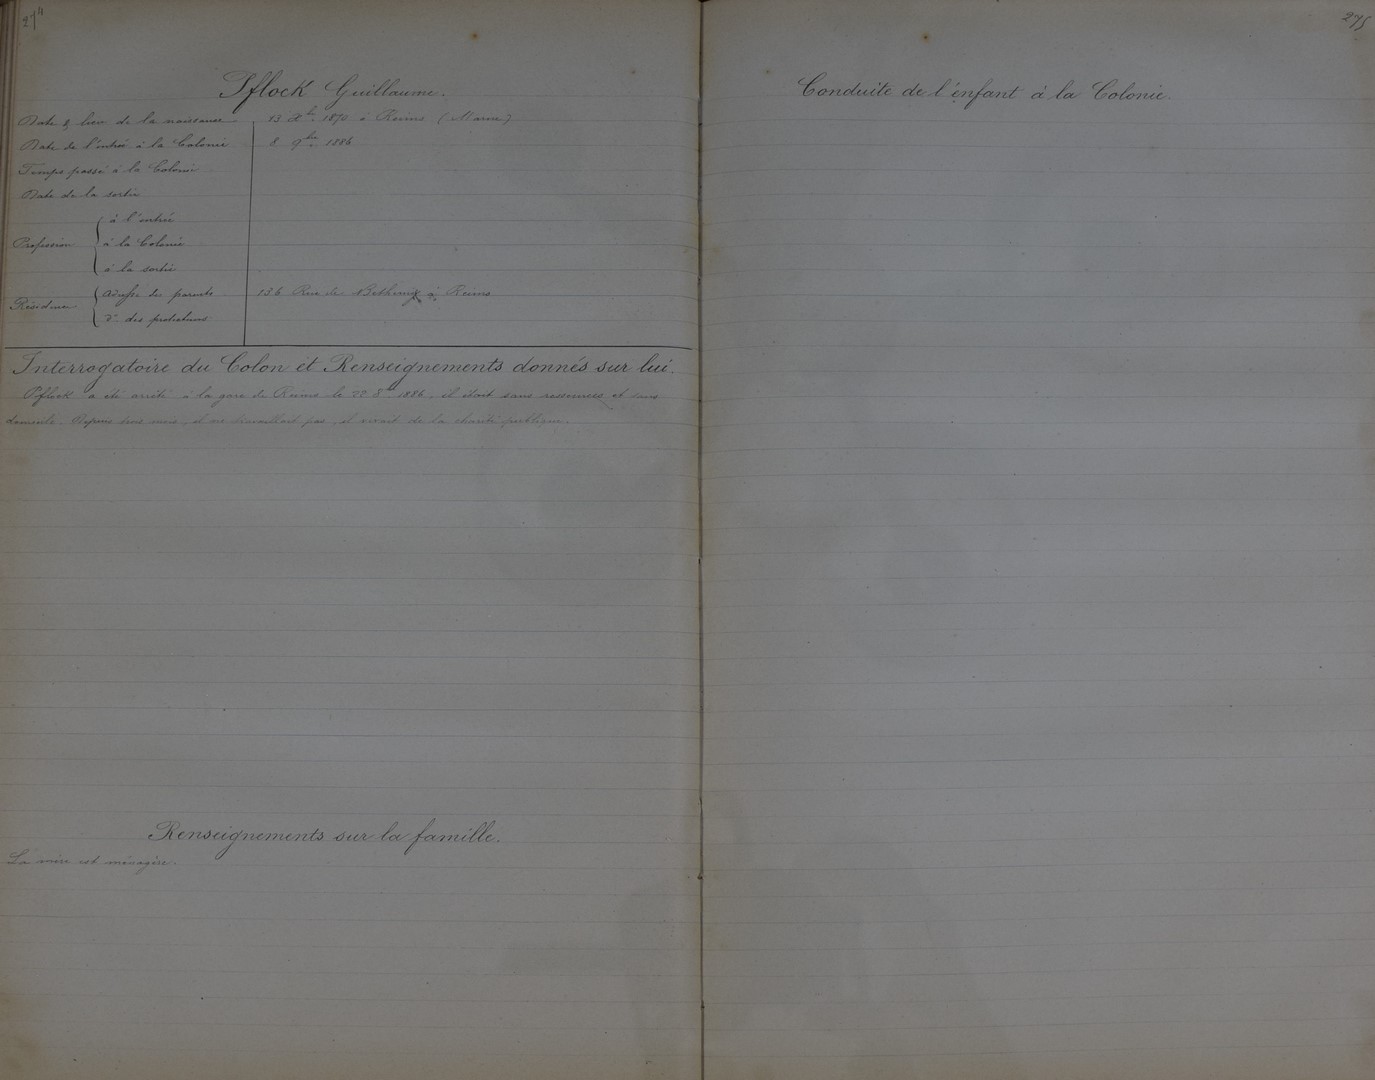 274
Pflock Guillaume.
Date & lieu de la naissance 13 Xbre 1870 à Reims (Marne)
Date de l'entrée à la Colonie 8 9bre 1886
Temps passé à la Colonie
Date de la sortie
Profession
à l'entrée
à la Colonie
à la sortie
Résidence
adresse des parents 136 Rue de à Reims
do des protecteurs
Interrogatoire du Colon et Renseignements donnés sur lui.
Pflock a été arrêté à la gare de Reims le 22 8bre 1886, il était sans ressources et sans
domicile. Depuis trois mois, il ne travaillait pas, il vivait de la charité publique.
Renseignements sur la famille.
La mère est ménagère.
275
Conduite de l'enfant à la Colonie.